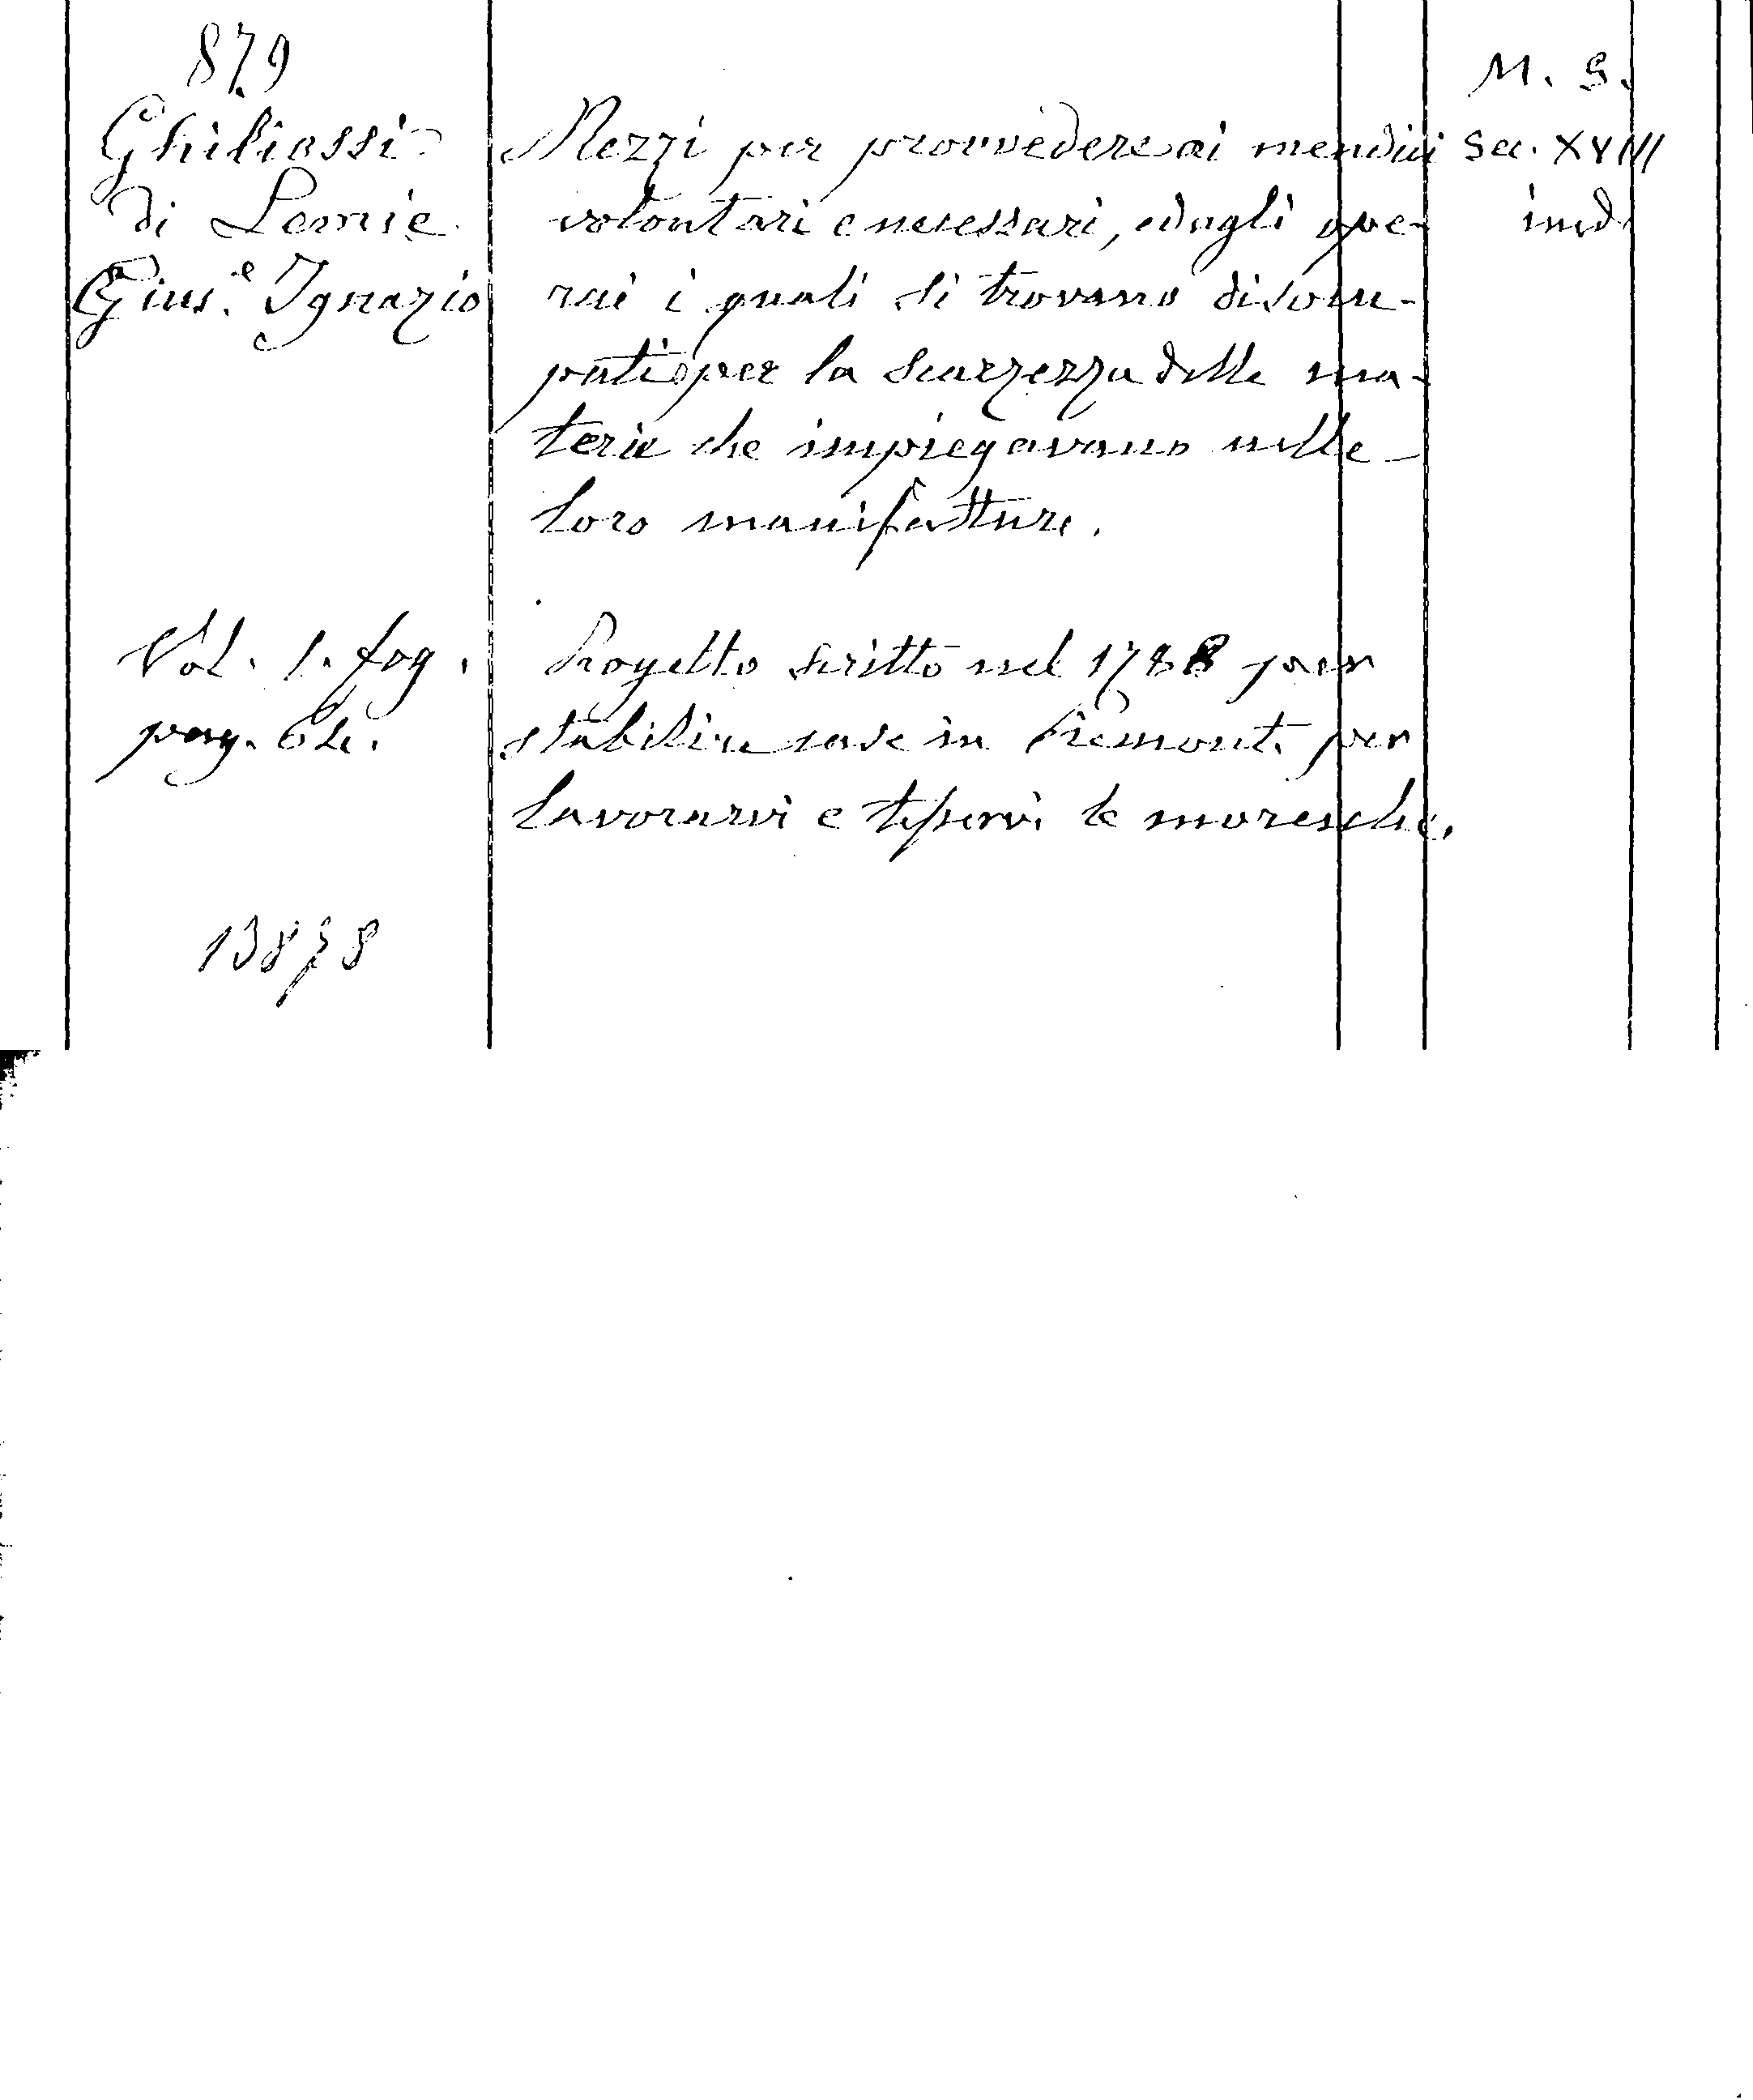 879
Ghiliossi
di Lemie
Gius.e Ignazio
Mezzi per provvedere ai mendici
volontari e necessari, ed agli ope-
rai i quali si trovano disoccu-
pati per la scarzezza delle ma-
terie che impiegavano nelle
loro manifatture.
M. S.
Sec. XVIII
ined.
Vol. 1. fog.
pag. 64.
Progetto scritto nel 1788 per
stabilire case in Piemonte per
lavorarvi e tesservi le moresche.
13878